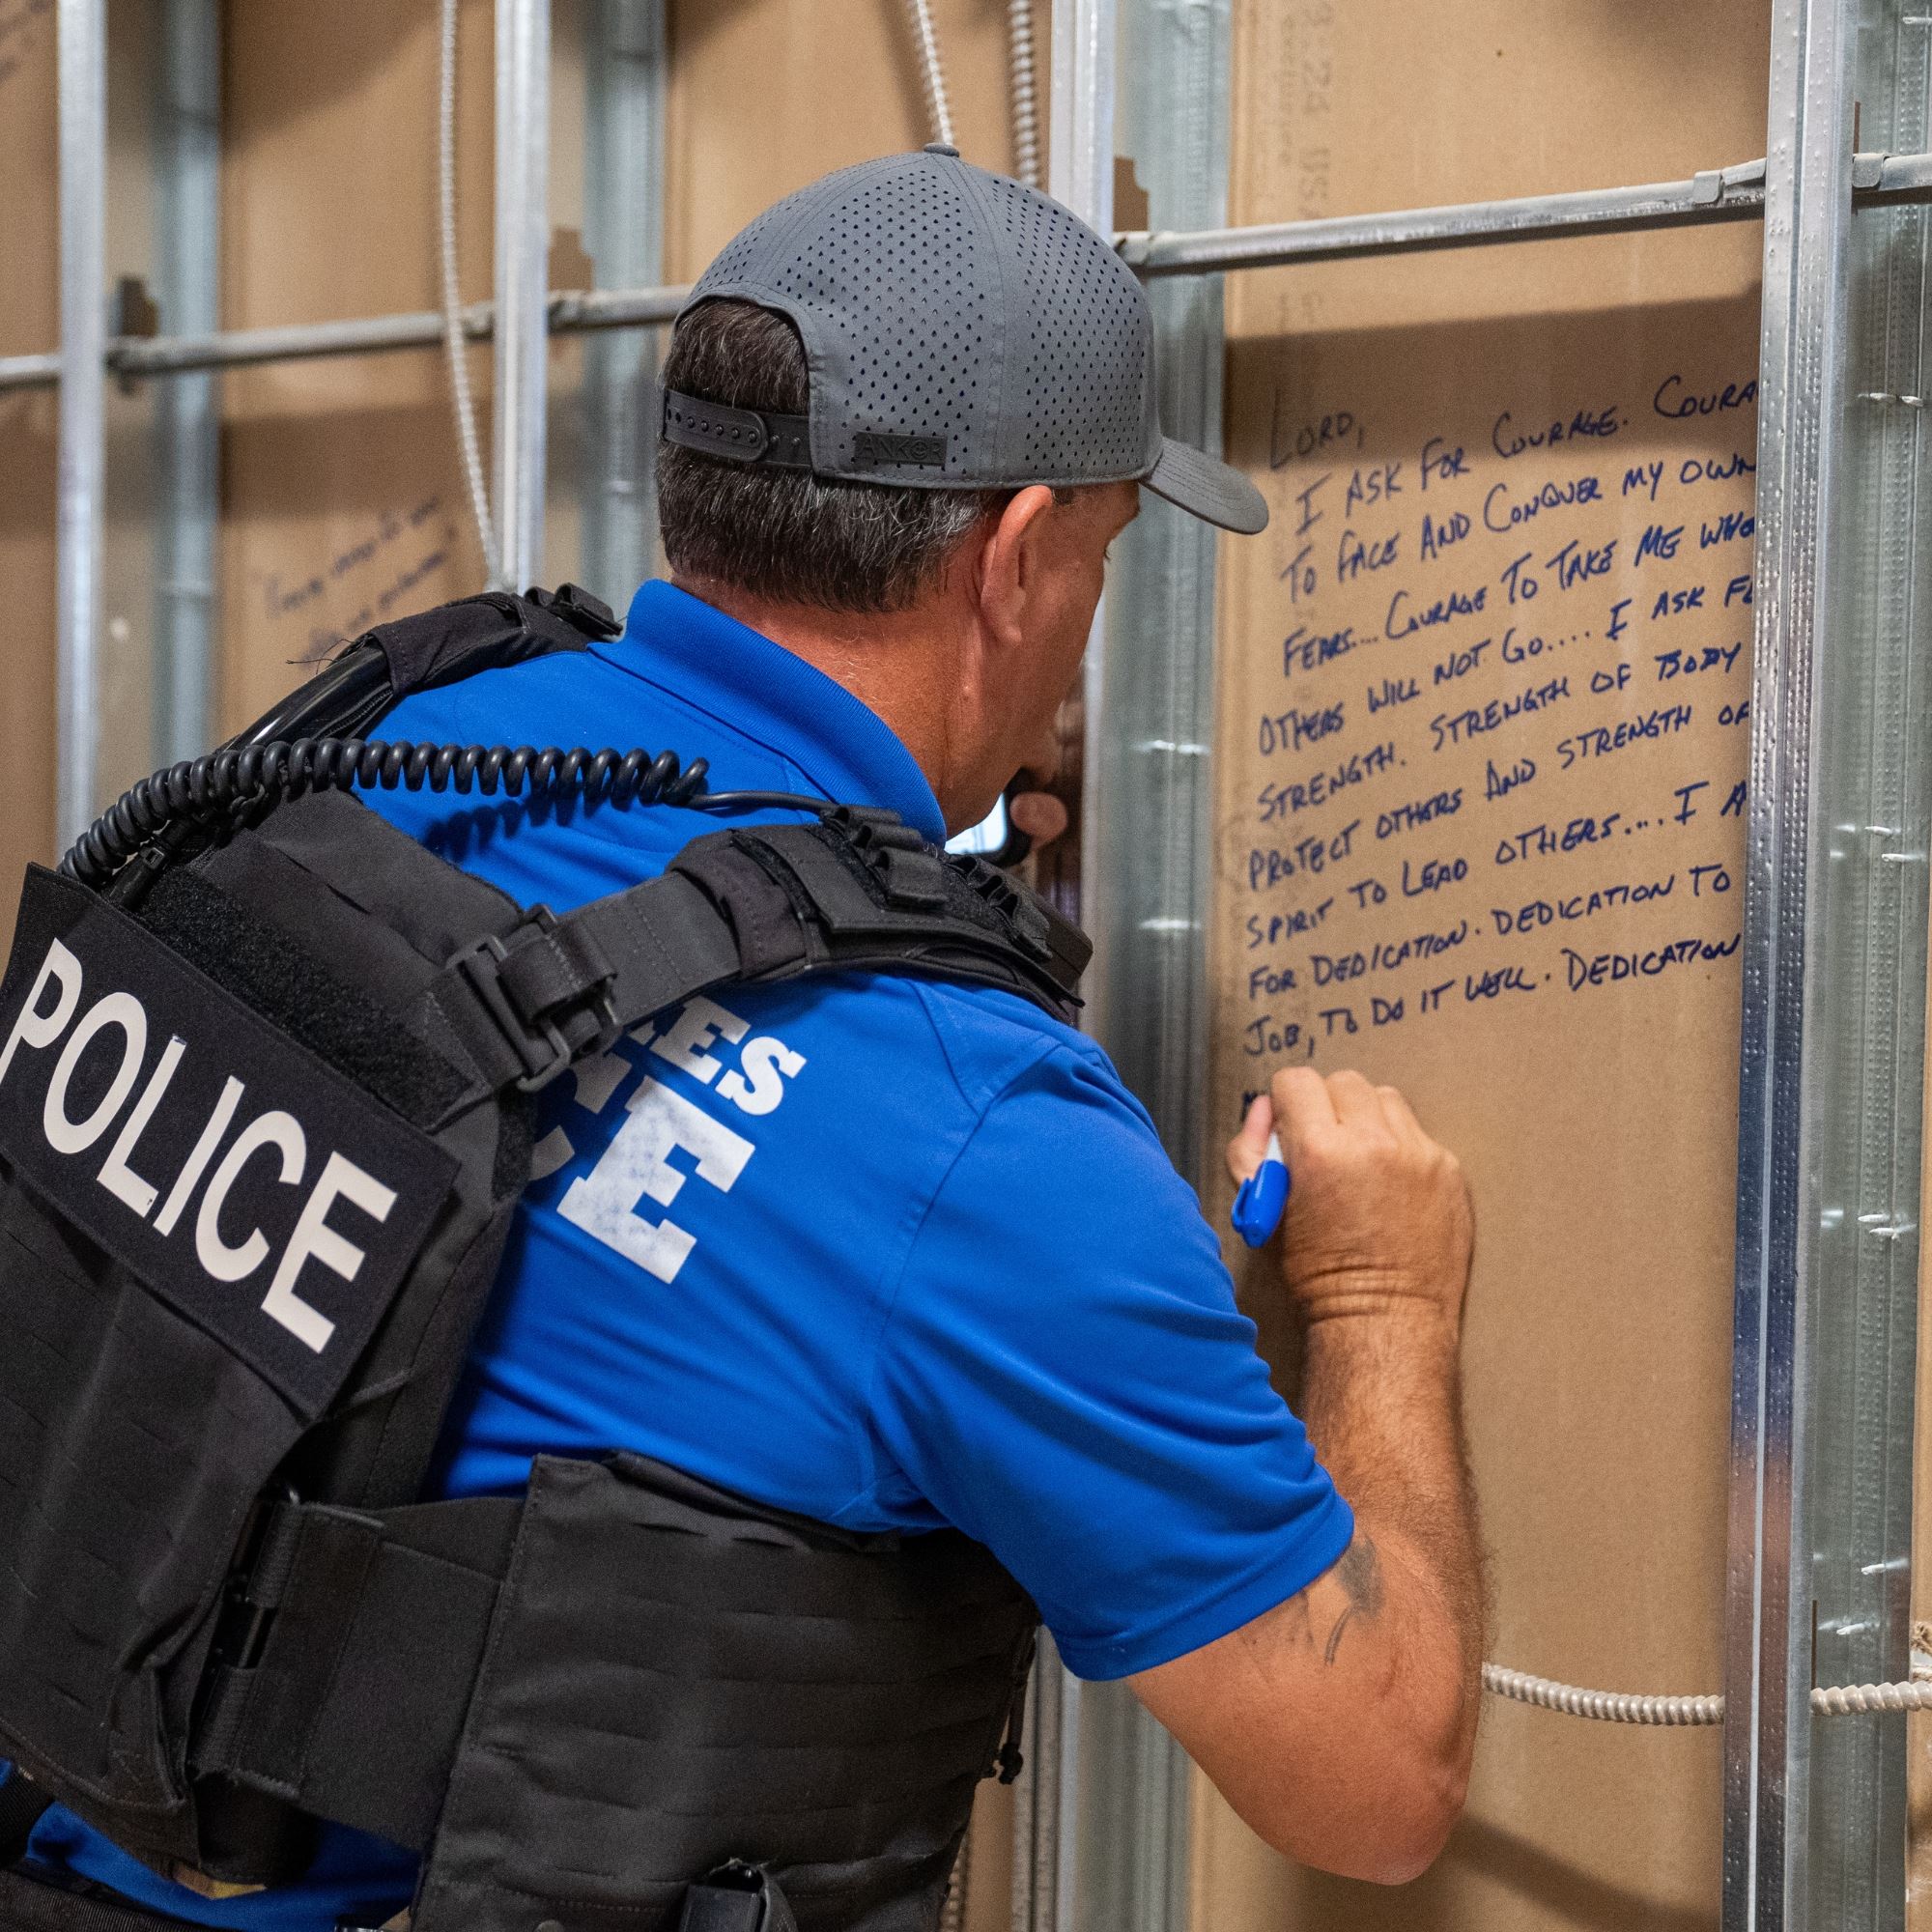 3-24 USA
LORD,
I ASK FOR COURAGE. COURA
TO FACE AND CONQUER MY OWN
FEARS.... COURAGE TO TAKE ME WHE
OTHERS WILL NOT GO.... I ASK FO
STRENGTH. STRENGTH OF BODY
PROTECT OTHERS AND STRENGTH OF
SPIRIT TO LEAD OTHERS.... I A
FOR DEDICATION. DEDICATION TO
JOB, TO DO IT WELL. DEDICATION
ANKOR
POLICE
KES
CE